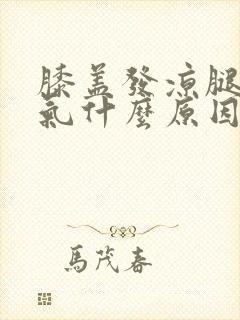 膝盖發涼腿
氣什麼原因
馬茂春